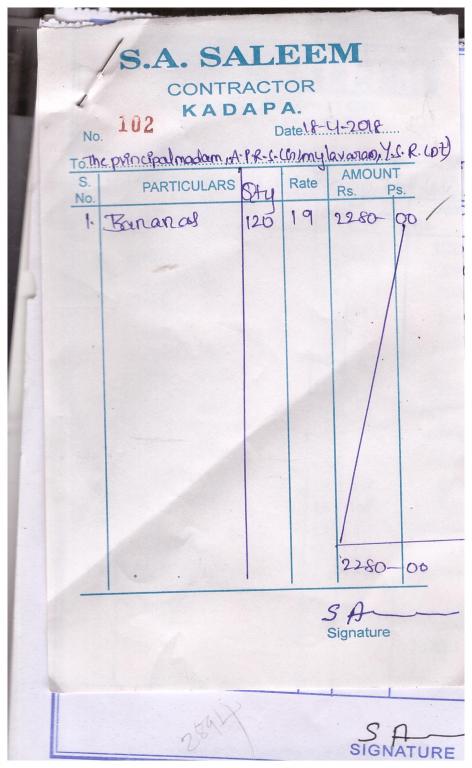 S.A. SALEEM
CONTRACTOR
KADAPA.
No. 102 Date 18-4-2018
To The principal madam, A.P.R.S. (G) mylavaram, Y.S.R. (DT)
S. No. PARTICULARS Qty Rate AMOUNT Rs. Ps.
1. Bananas 120 19 2280- 00
2280-00
S A
Signature
2894
S A
SIGNATURE